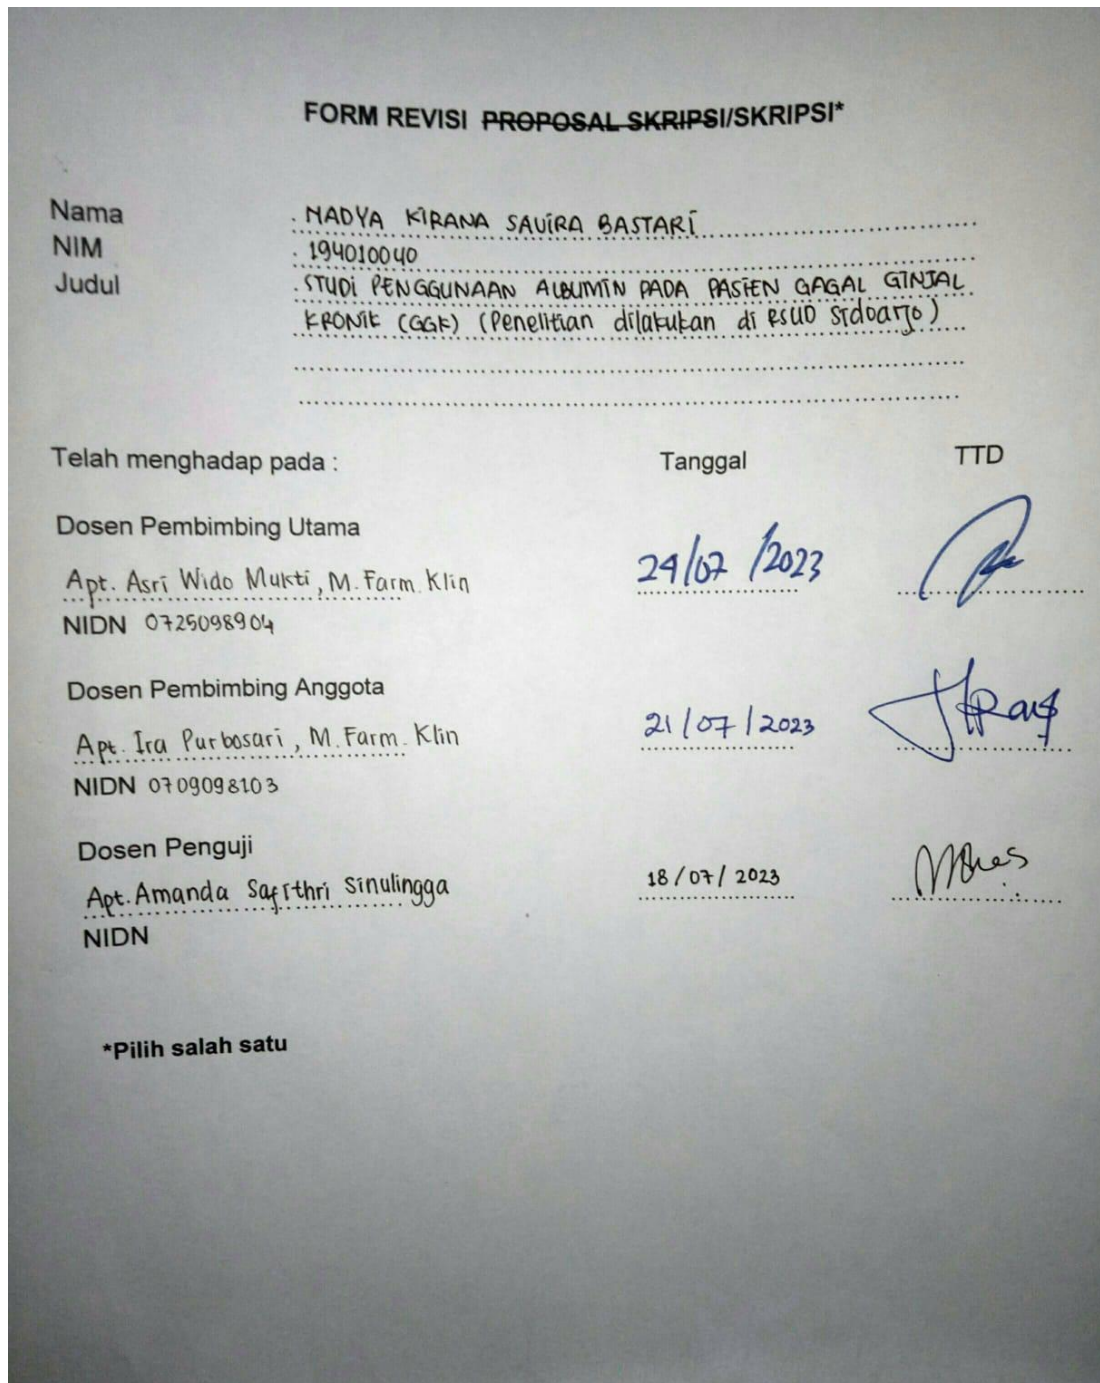 FORM REVISI PROPOSAL SKRIPSI/SKRIPSI*
Nama : NADYA KIRANA SAVIRA BASTARI
NIM : 194010040
Judul : STUDI PENGGUNAAN ALBUMIN PADA PASIEN GAGAL GINJAL
KRONIK (GGK) (Penelitian dilakukan di RSUD Sidoarjo)
Telah menghadap pada : Tanggal TTD
Dosen Pembimbing Utama
Apt. Asri Wido Mukti, M. Farm. Klin 24/07/2023
NIDN 0725098904
Dosen Pembimbing Anggota
Apt. Ira Purbosari, M. Farm. Klin 21/07/2023
NIDN 0709098103
Dosen Penguji
Apt. Amanda Safithri Sinulingga 18/07/2023
NIDN
*Pilih salah satu